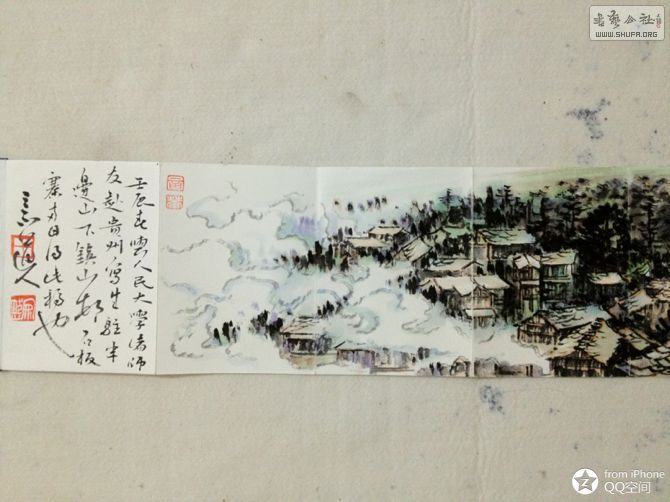 壬辰春與人民大學諸師
友赴貴州寫生駐半
邊山下鎮山村石板
寨廿日得此稿也
WWW.SHUFA.ORG
from iPhone
QQ空间